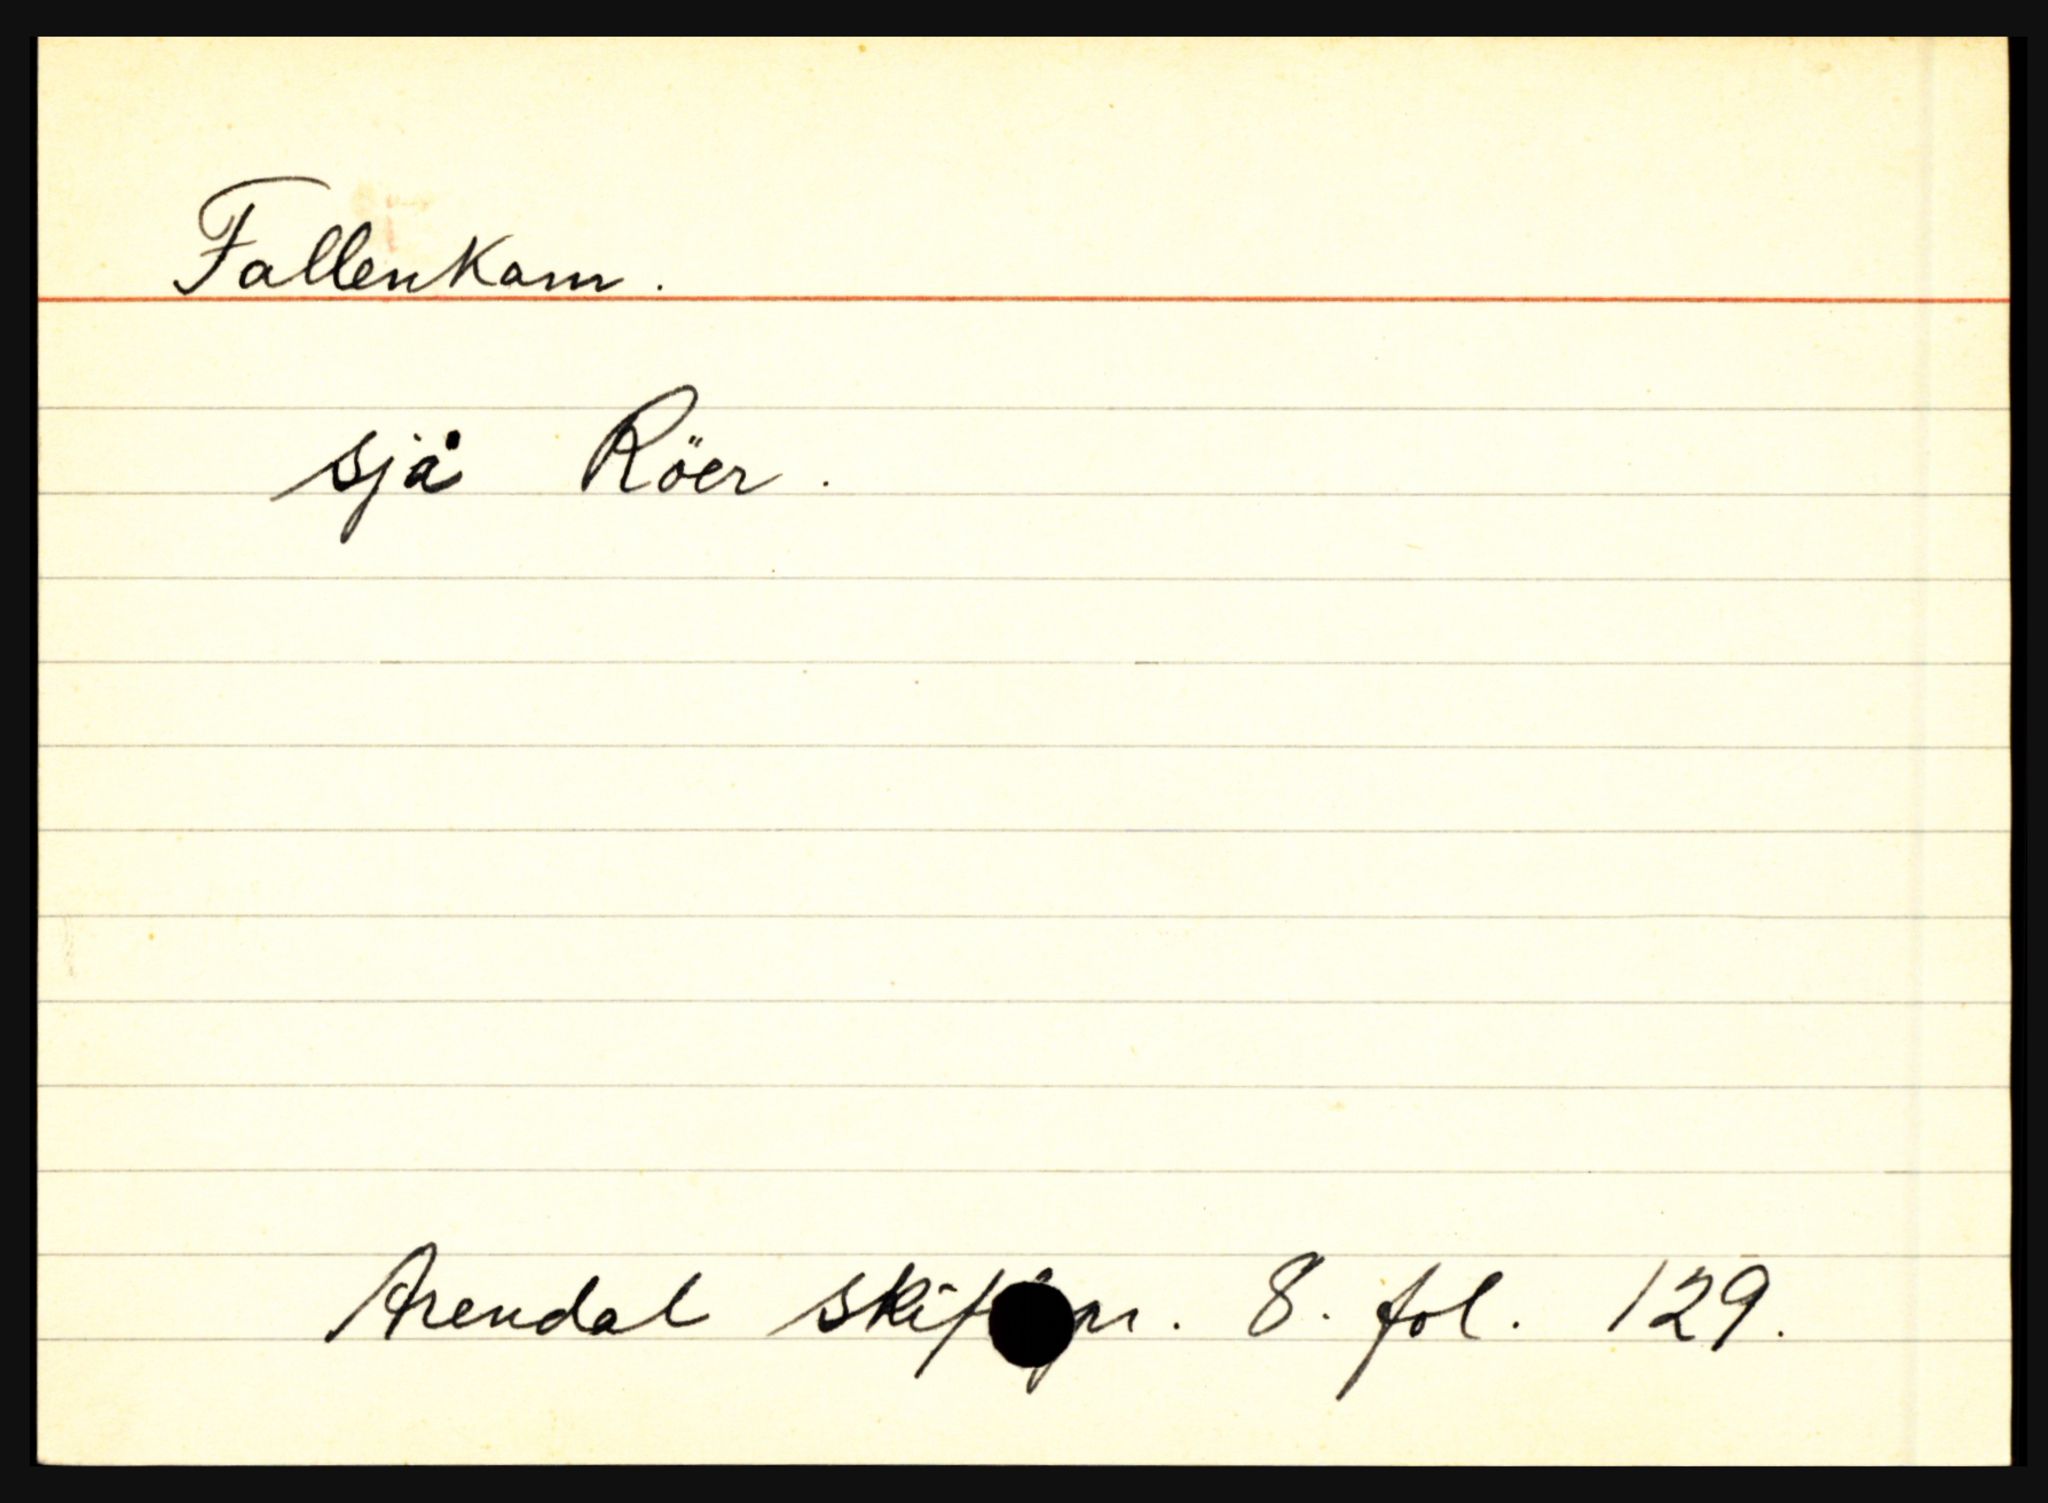 Fallenkam.
sjå Röer.
Arendal 8. fol. 129.